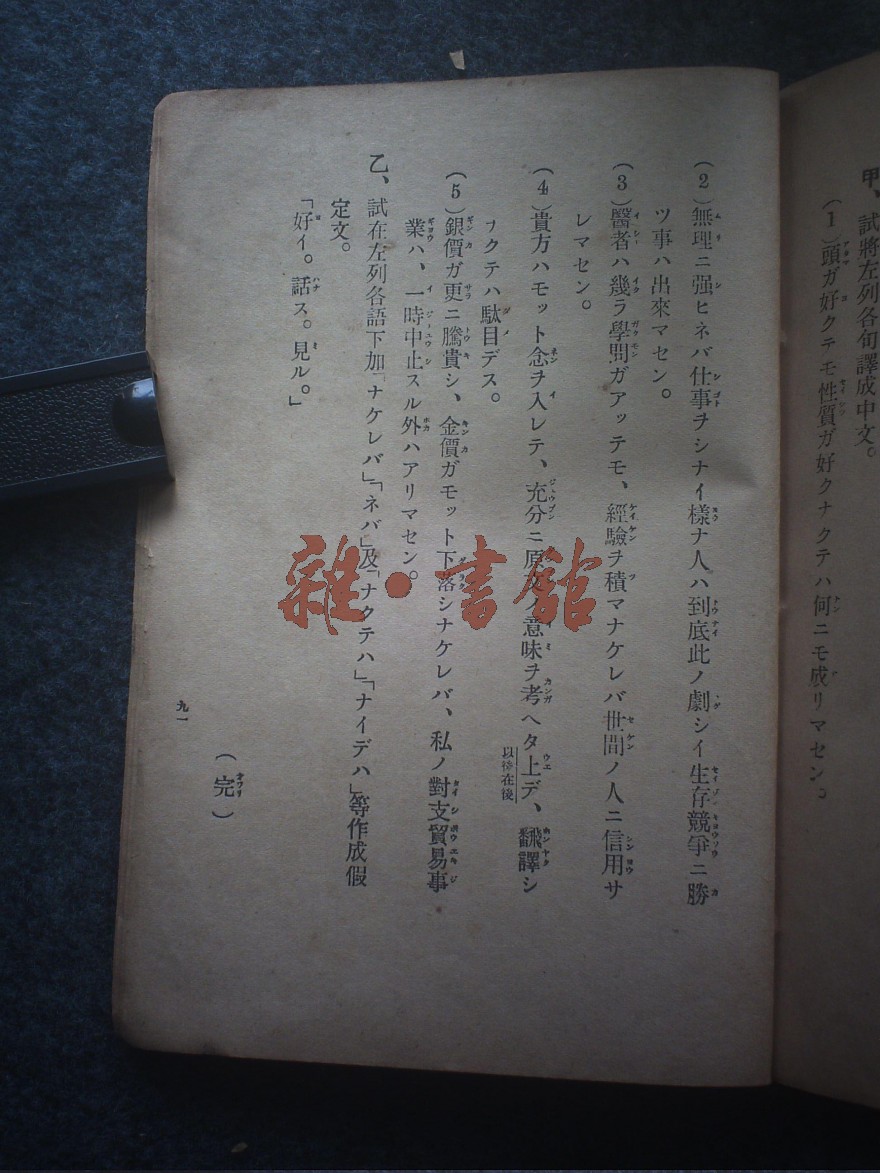 甲、試將左列各句譯成中文。
(1)頭ガ好クテモ性質ガ好クナクテハ何ニモ成リマセン。
(2)無理ニ强ヒネバ仕事ヲシナイ樣ナ人ハ到底此ノ劇シイ生存競爭ニ勝
ツ事ハ出來マセン。
(3)醫者ハ幾ラ學問ガアッテモ、經驗ヲ積マナケレバ世間ノ人ニ信用サ
レマセン。
(4)貴方ハモット念ヲ入レテ、充分ニ原文ノ意味ヲ考ヘタ上デ、飜譯シ
ヲクテハ駄目デス。
(5)銀價ガ更ニ騰貴シ、金價ガモット下落シナケレバ、私ノ對支貿易事
業ハ、一時中止スル外ハアリマセン。
乙、試在左列各語下加「ナケレバ」「ネバ」及「ナクテハ」「ナイデハ」等作成假
定文。
「好イ。話ス。見ル。」
(完)
九一
雜·書館